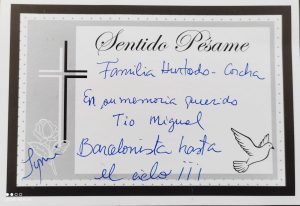 Sentido Pésame
Familia Hurtado - Concha
En su memoria querido
Tio Miguel
Barcelonista hasta
el cielo !!!